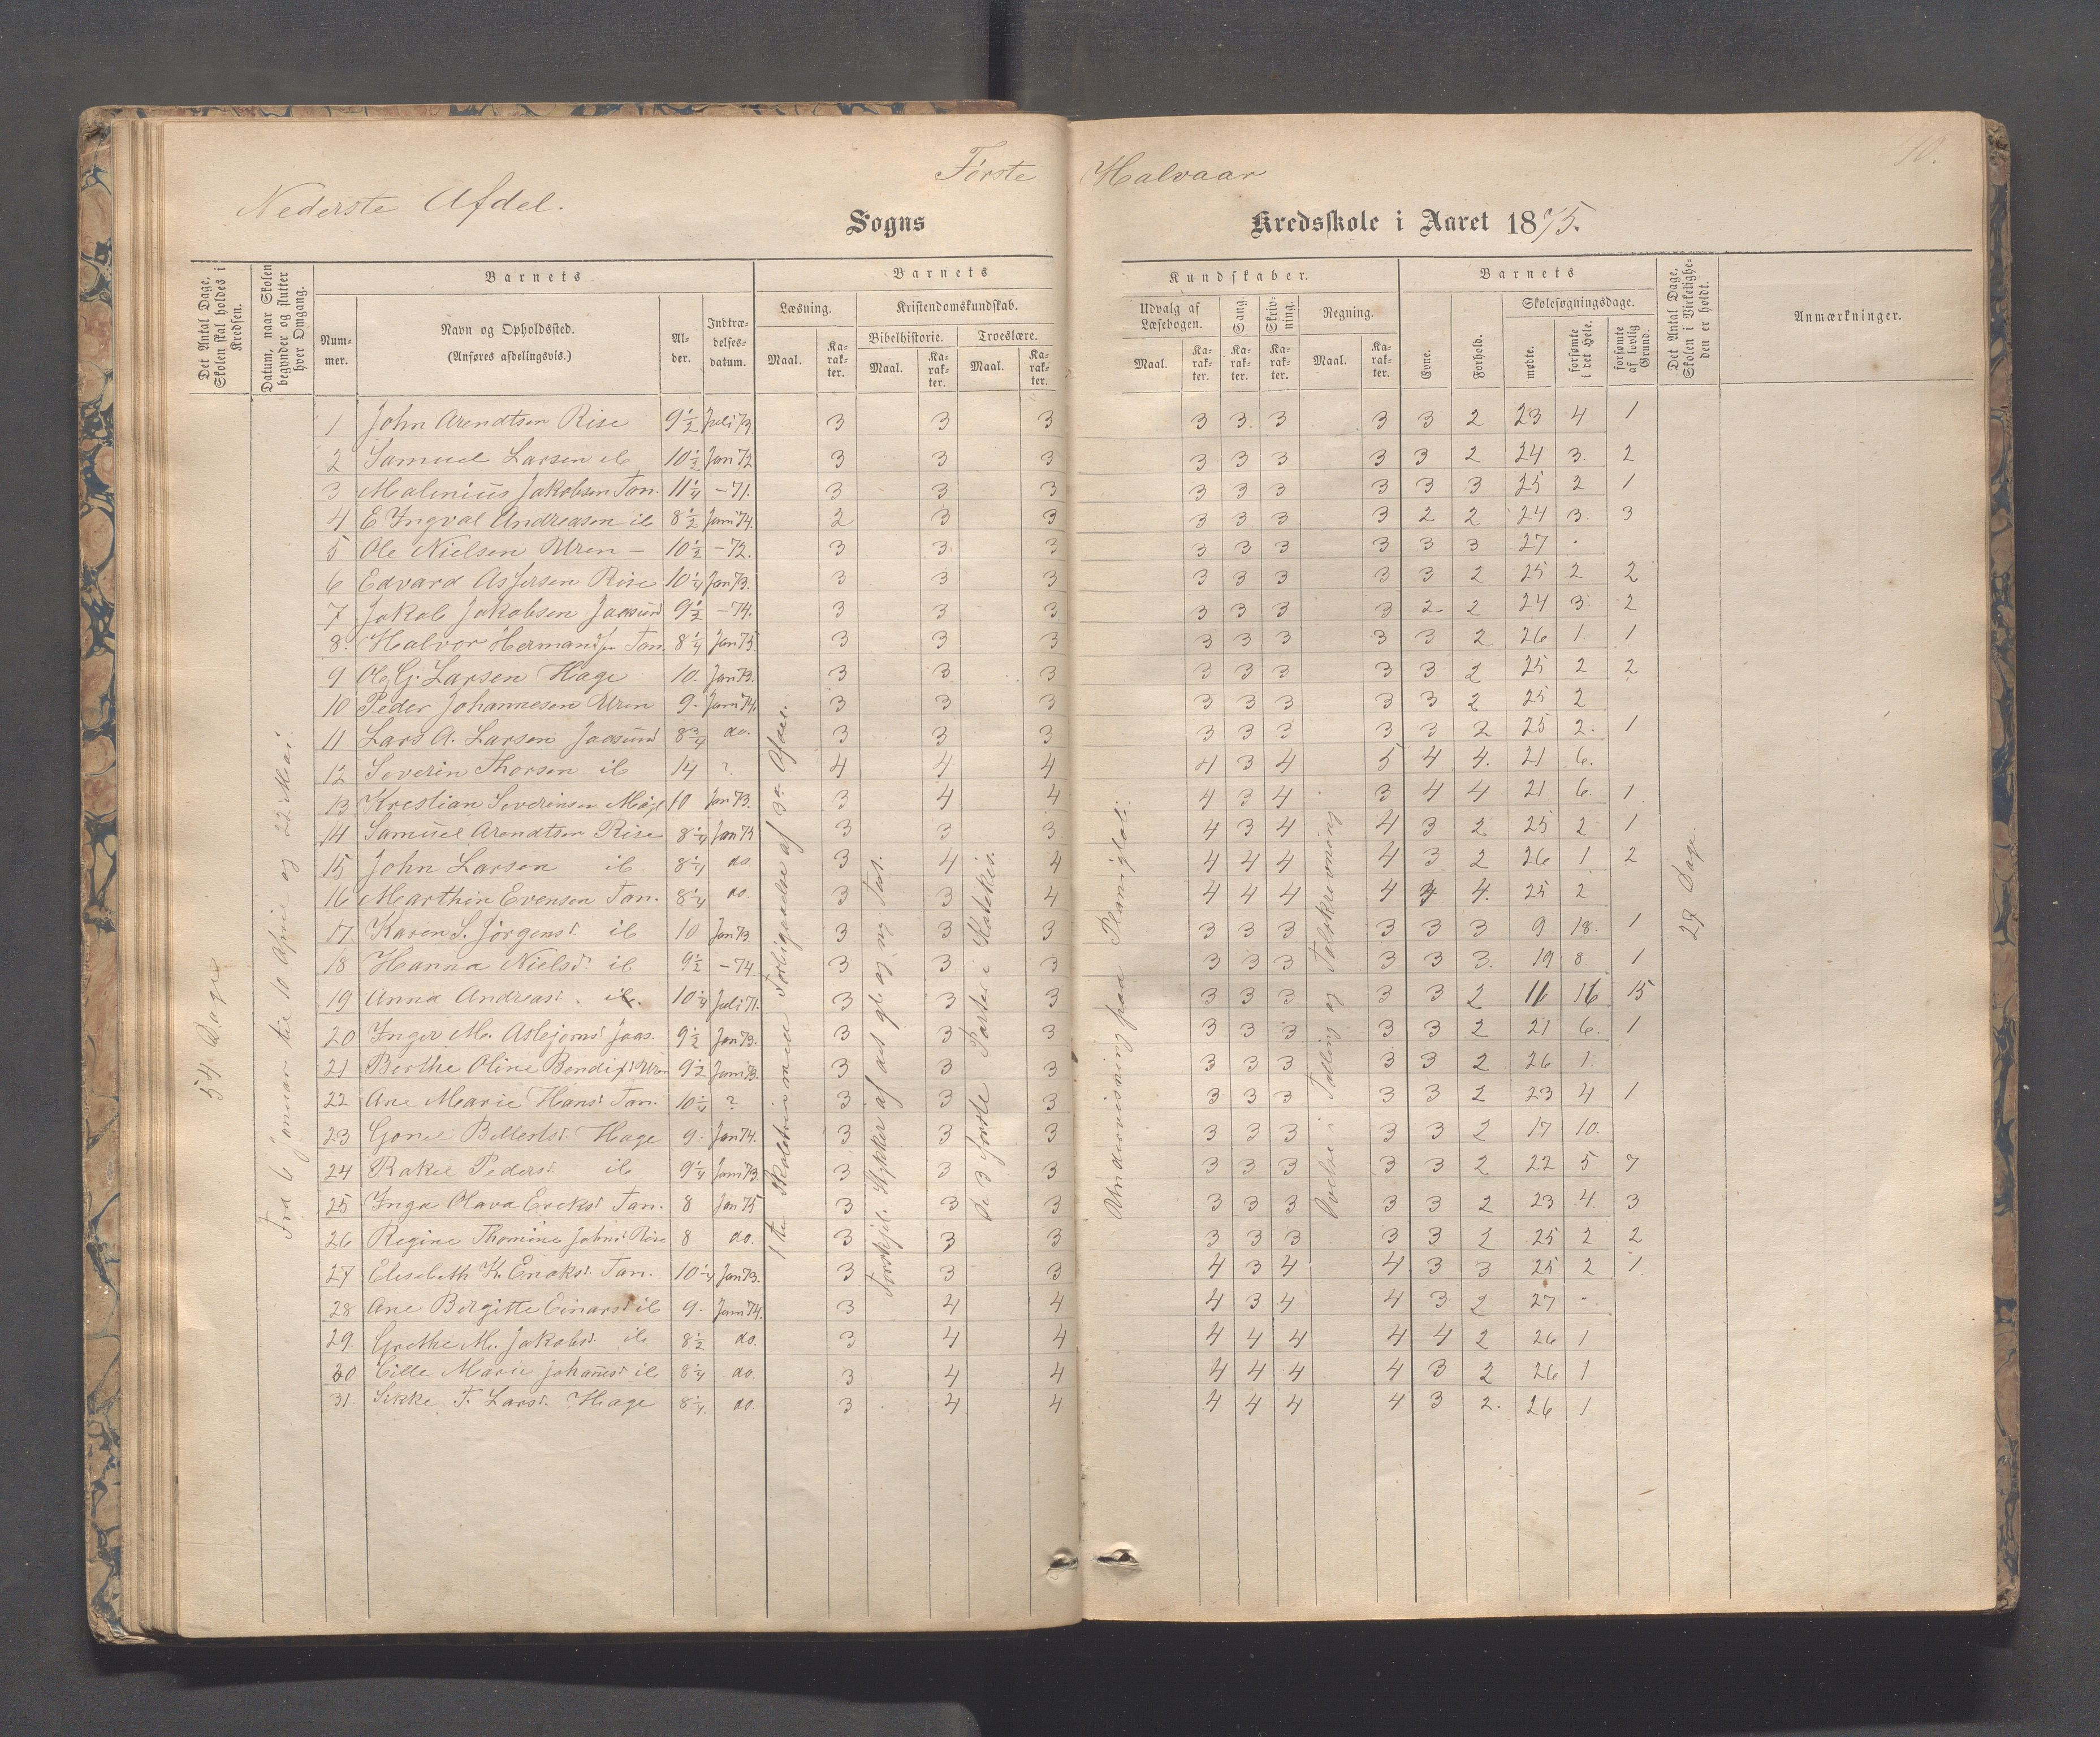 10.
Første Halvaar
Nederste Afdel.
Sogns Kredsskole i Aaret 1875.
Det Antal Dage, Skolen skal holdes i Kredsen.
Datum, naar Skolen begynder og slutter hver Omgang.
Barnets
Num-mer.
Navn og Opholdssted.
(Anføres afdelingsvis.)
Al-der.
Indtræ-delses-datum.
Barnets
Læsning.
Kristendomskundskab.
Bibelhistorie.
Troeslære.
Maal.
Ka-rak-ter.
Maal.
Ka-rak-ter.
Maal.
Ka-rak-ter.
Kundskaber.
Udvalg af Læsebogen.
Sang.
Skriv-ning.
Regning.
Maal.
Ka-rak-ter.
Ka-rak-ter.
Ka-rak-ter.
Maal.
Ka-rak-ter.
Barnets
Evne.
Forhold.
Skolesøgningsdage.
mødte.
forsømte i det Hele.
forsømte af lovlig Grund.
Det Antal Dage, Skolen i Virkelighe-den er holdt.
Anmærkninger.
54 Dage
Fra 6 Januar til 10 April og 22 Mai.
1 John Arendtsen Rise 9½ Juli 73 3 3 3 3 3. 3 3 3 2 23 4 1
2 Samuel Larsen ib 10½ Jan 72 3 3 3 3 3 3 3 3 2 24 3. 2
3 Malinius Jakobsen Tan. 11¼ –71. 3 3 3 3 3 3 3 3 3 25 2 1
4 E Ingval Andreasen ib 8½ Juni 74. 2 3 3 3 3 3 3 2 2 24 3. 3
5 Ole Nielsen Uren – 10½ –72. 3 3. 3 3 3 3 3 3 3 27 .
6 Edvard Asjersen Rise 10¼ Jan 73. 3 3 3 3 3 3 3 3 2 25 2 2
7 Jakob Jakobsen Jaasund 9½ –74. 3 3 3 3 3 3 3 2 2 24 3. 2
8. Halvor Hermands Tan. 8¼ Jan 75. 3 3 3 3 3 3 3 3 2 26 1. 1
9 Ole Gj. Larsen Hage 10. Jan 73. 3 3 3 3 3 3 3 3 2 25 2 2
10 Peder Johannesen Uren 9. Juni 74. 3 3 3 3 3 3 3 3 2 25 2
11 Lars A. Larsen Jaasund 8¾ do. 3 3 3 3 3 3 3 3 2 25 2. 1
12 Severin Thorsen ib 14 ? 4 4 4 4 3 4 5 4 4. 21 6.
13 Krestian Severinsen 10 Jan 73. 3 4 4 4 3 4 3 4 4 21 6. 1.
14 Samuel Arendtsen Rise 8¼ Jan 75 3 3 3 4 3 4 4 3 2 25 2 1
15 John Larsen ib 8¼ do. 3 4 4 4 4 4 4 3 2 26 1 2
16 Marthin Evensen Tan. 8¼ do. 3 3 4 4 4 4 4 4 4. 25 2
17. Karen S. Jörgensd. ib 10 Jan 73 3 3 3 3 3 3 3 3 3 9 18. 1
18 Hanna Nielsd. ib 9½ –74 3 3 3 3 3 3 3 3 3. 19 8 1
19 Anna Andreasd. ib. 10¼ Juli 71. 3 3 3 3 3 3 3 3 2 11 16 15
20 Inger M. Asbjørnsd Jaas. 9½ Jan 73. 3 3 3 3 3 3 3 3 2 21 6. 1
21 Berthe Oline Uren 9½ Juni 73. 3 3 3 3 3 3 3 3 2 26 1.
22 Ane Marie Hansd Tan. 10¼ ? 3 3 3 3 3 3 3 3 2 23 4 1
23 Gonel Hage 9. Jan 74. 3 3 3 3 3 3 3 3 2 17 10.
24 Rakel Pedersd. ib 9¼ Juni 73. 3 3 3 3 3 3 3 3 2 22 5 7
25 Inga Olava Ericksd Tan. 8 Jan 75 3 3 3 3 3 3 3 3 2 23 4. 3
26 Regine Thomine Johnsd Rise 8 do. 3 3 3 3 3 3 3 3 2 25 2 2
27 Elisabeth K. Enoksd. Tan. 10¼ Jan 73. 3 3 3 4 3 4 4. 3 3 25 2 1.
28 Ane Birgitte Einarsd ib 9. Juni 74. 3 4 4 4 3 4 4 3 2 27 -
29. Grethe M. Jakobsd. ib 8½ do. 3 4 4 4 4 4 4 4 2 26 1
30 Cille Marie Johannesd ib 8¼ do. 3 4 4 4 4 4 4 3 2 26 1
31. Sikke T. Larsd. Hage 8¼. do. 3 4 4 4 4 4 4 3 2. 26 1
1ste Skoletrin med Forbigaaelse af 3die Afdel.
Forskjel. Stykker af det gl. og ny Test.
de 3 første Parter i Katekis.
Undervisning paa Planiglob.
Øvelse i Tælling og Talskrivning
27 Dage.